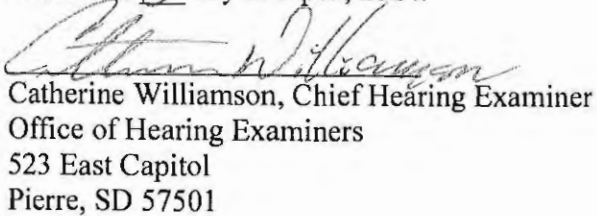 Catherine Williamson
Catherine Williamson, Chief Hearing Examiner
Office of Hearing Examiners
523 East Capitol
Pierre, SD 57501